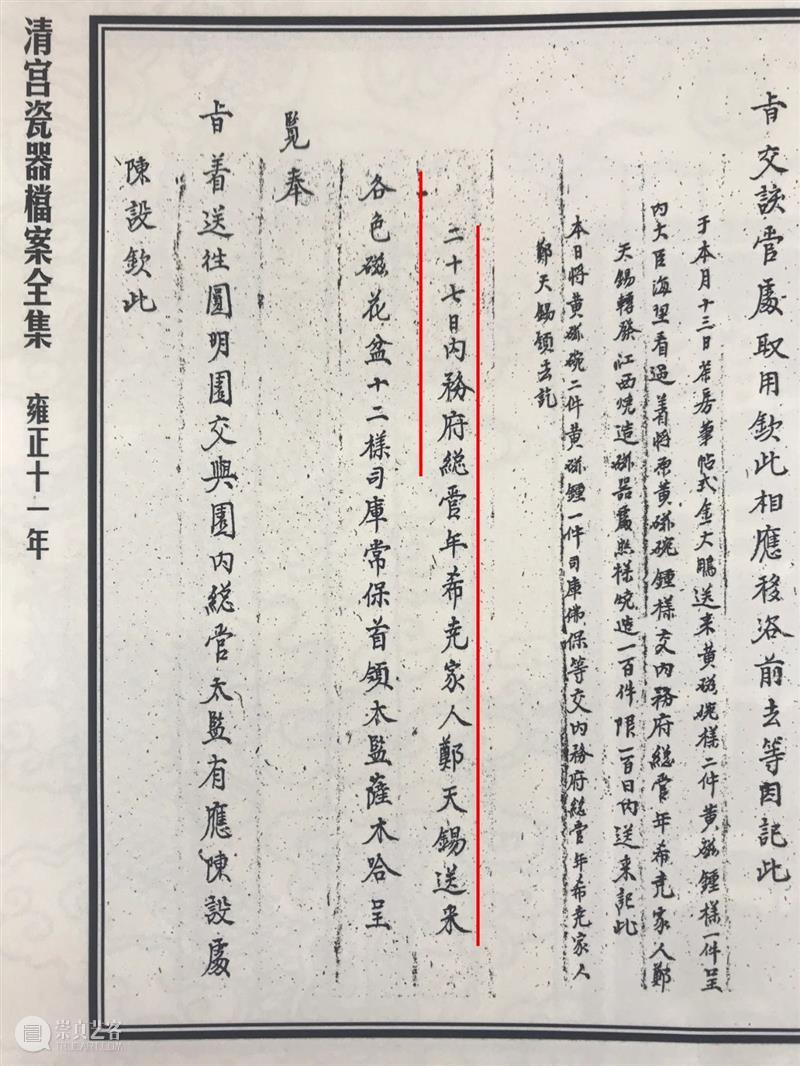 旨交該管處取用欽此相應移咨前去等因記此
于本月十三日茶房筆帖式金大鵬送来黄磁碗樣二件黄磁鍾樣一件呈
内大臣海望看過着将原黄磁碗鍾樣交内務府總管年希堯家人鄭
天錫轉發江西燒造磁器處照樣燒造一百件限一百日内送来記此
本日将黄磁碗二件黄磁鍾一件司庫佛保等交内務府總管年希堯家人
鄭天錫領去訖
二十七日内務府總管年希堯家人鄭天錫送来
各色磁花盆十二樣司庫常保首領太監薩木哈呈
覽奉
旨着送往圓明園交與園内總管太監有應陳設處
陳設欽此
清宫瓷器檔案全集 雍正十一年
崇真艺客